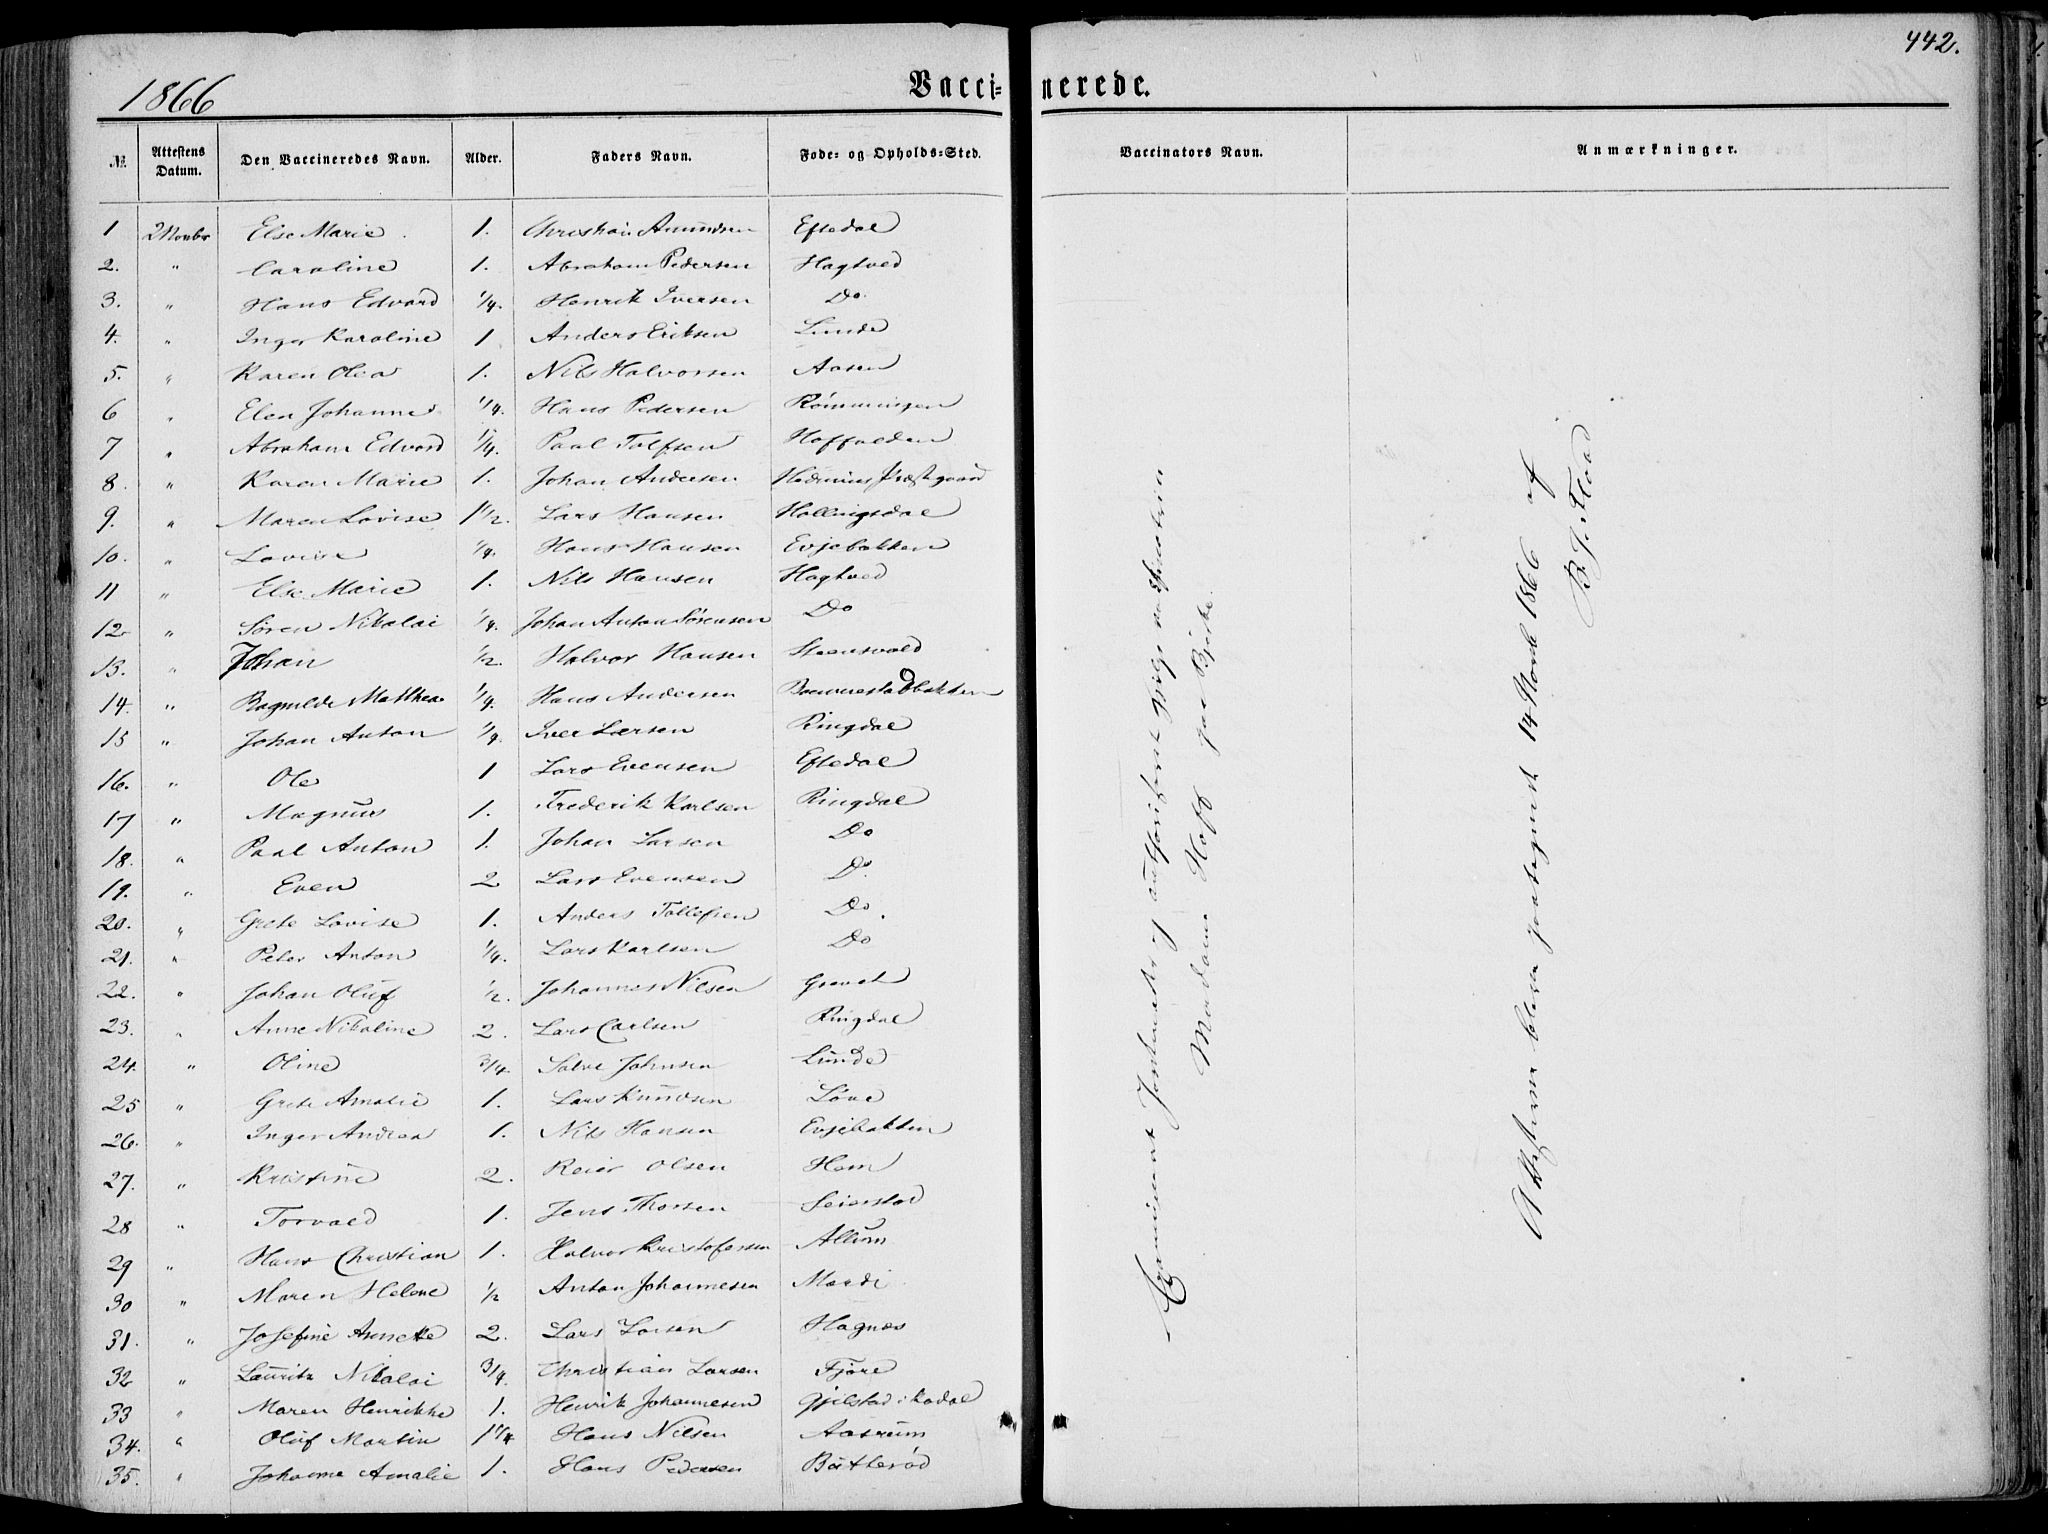 1866 Vaccinerede. 442.
№ Attestens Datum. Den Vaccineredes Navn. Alder. Faders Navn. Føde- og Opholds-Sted. Vaccinators Navn. Anmærkninger.
1 2 Novbr Else Marie 1. Christian Amundsen Eftedal
2. " Caroline 1. Abraham Pedersen Hagtved
3. " Hans Edvard 1/4. Henrik Iversen Do
4. " Inger Karoline 1 Anders Eriksen Lunde
5. " Karen Olea 1. Nils Halvorsen Aasen
6 " Elen Johanne 1/4. Hans Pedersen Rømmingen
7 " Abraham Edvard 1/4. Paal Tolfsen Hoffalden
8. " Karen Marie 1. Johan Andersen Hedrums Præstgaard
9. " Maren Lovise 1 1/2. Lars Hansen Hallingsdal
10. " Lovise 1/4. Hans Hansen Evjebakken
11 " Else Marie 1. Nils Hansen Hagtved
12. " Søren Nikolai 1/4. Johan Anton Sørensen Do
13. " Johan 1/2. Halvor Hansen
14. " Ragnilde Mathea 1/4. Hans Andersen
15 " Johan Anton 1/4. Iver Larsen Ringdal
16. " Ole 1 Lars Evensen Eftedal
17 " Magnus 1. Frederik Karlsen Ringdal
18. " Paal Anton 1. Johan Larsen Do
19. " Even 2 Lars Evensen Do.
20. " Grete Lovise 1. Anders Tollefsen Do.
21. " Peter Anton 1/4. Lars Karlsen Do
22. " Johan Oluf 1/2. Johannes Nilsen Grevet
23. " Anne Nikoline 2. Lars Carlsen Ringdal
24. " Oline 3/4. Salve Johnsen Lunde
25 " Grete Amalie 1. Lars Knudsen Løve
26. " Inger Andrea 1. Nils Hansen Evjebakken
27. " Kristine 2. Reier Olsen Hem
28 " Torvald 1. Jens Thorsen Seierstad
29 " Hans Christian 1. Halvor Kristofersen Allum
30 " Maren Helene 1/2 Anton Johannesen
31. " Josefine Annette 2. Lars Larsen Hagnæs
32 " Lauritz Nikolai 3/4. Christian Larsen Fjære
33 " Maren Henrikke 1. Henrik Johannesen Gjelstad i Kodal
34. " Oluf Martin 1 1/4 Hans Nilsen Aasrum
35. " Johanne Amalie 1. Hans Pedersen Bøtterød
Examineret Jordemoder
Madam Hoff paa Bjerke.
Attesterne bleve paategnede 14 Novb 1866 af
B. J. Flood